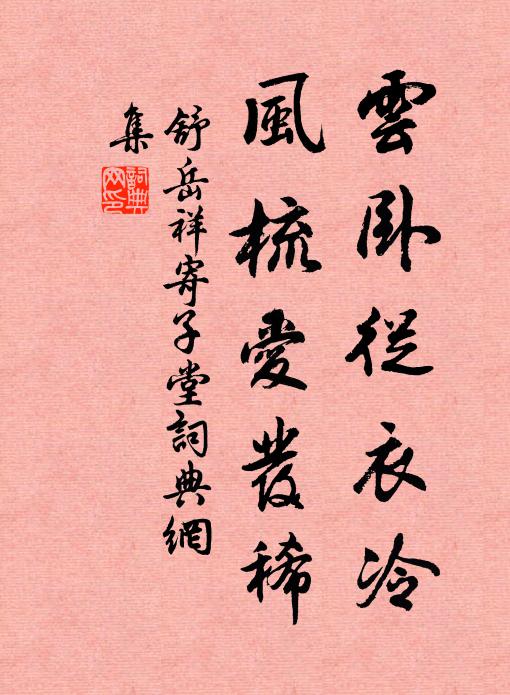 雲臥從衣冷
風梳愛髮稀
舒岳祥寄子堂詞典網
集
詞典网印